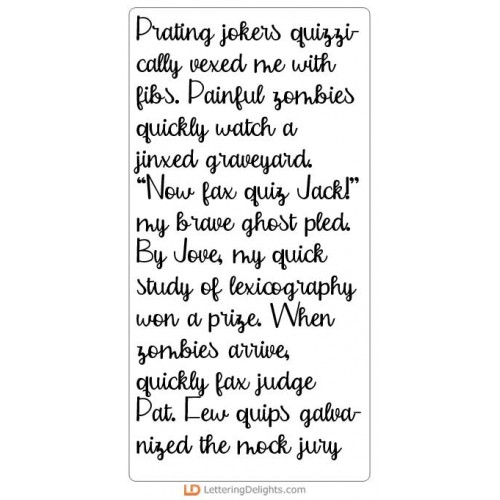 Prating jokers quizzi-
cally vexed me with
fibs. Painful zombies
quickly watch a
jinxed graveyard.
“Now fax quiz Jack!”
my brave ghost pled.
By Jove, my quick
study of lexicography
won a prize. When
zombies arrive,
quickly fax judge
Pat. Few quips galva-
nized the mock jury
LD LetteringDelights.com